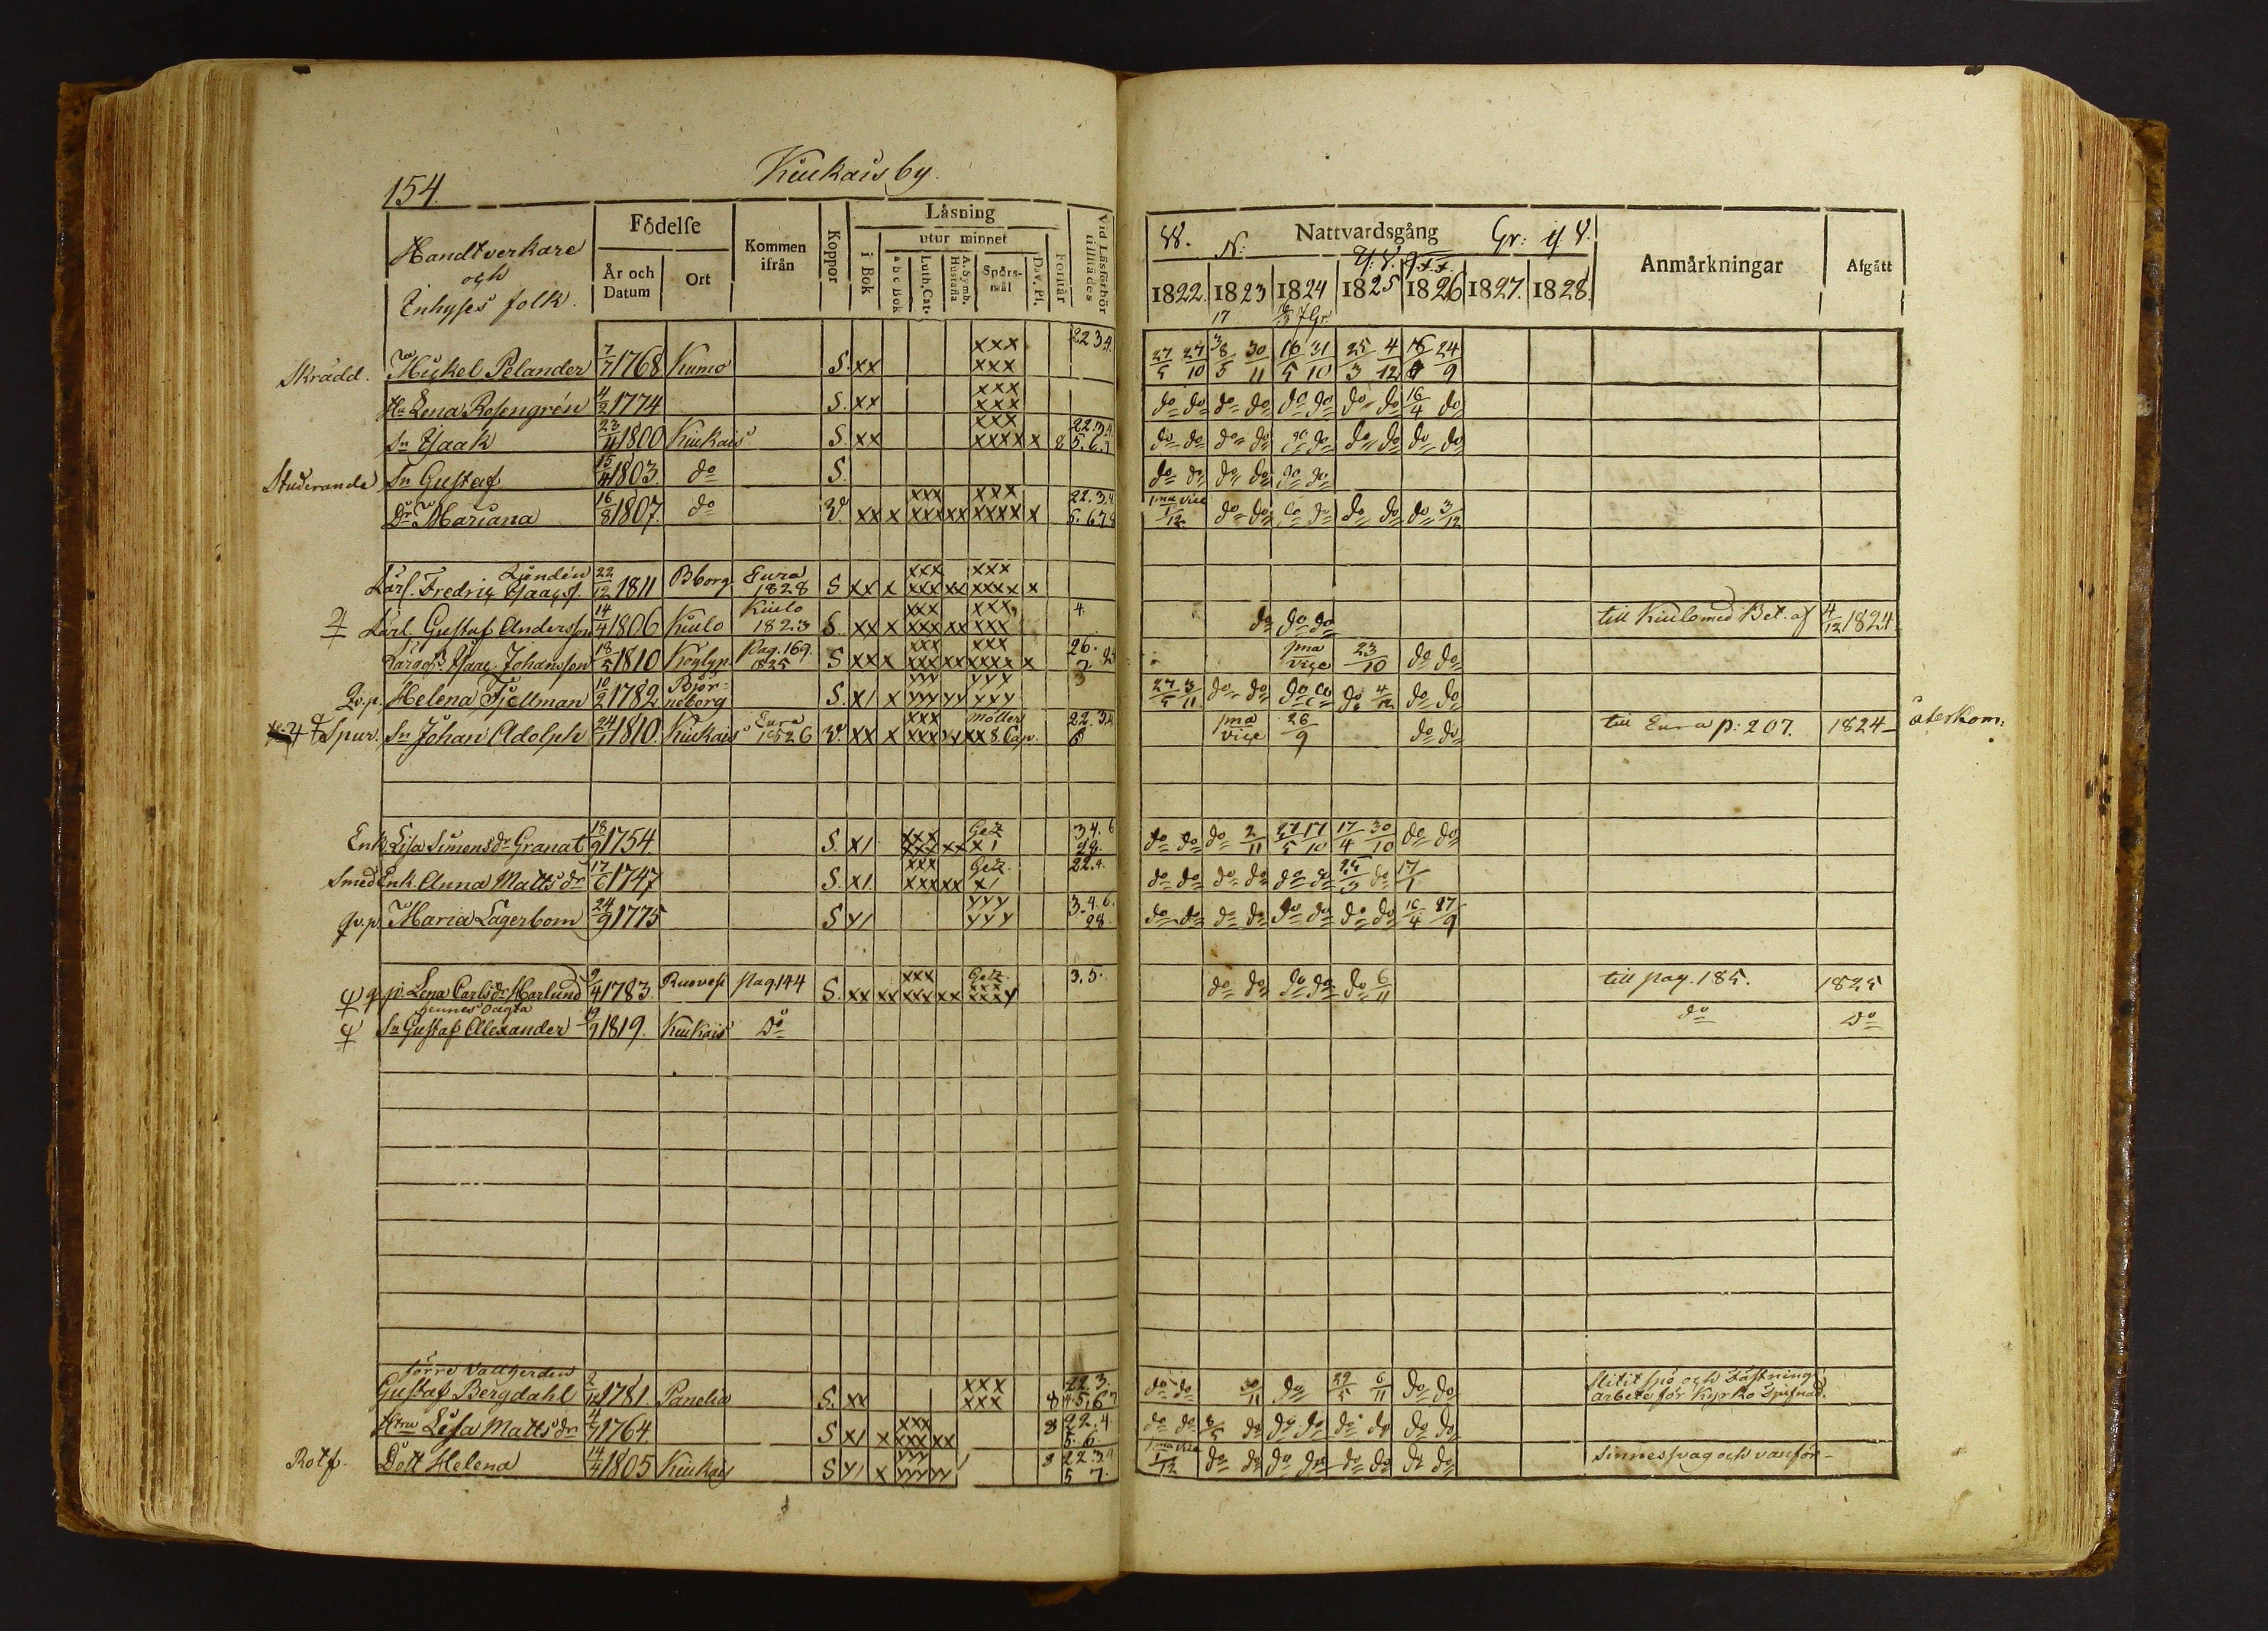 154. Kiukais by.
Handtverkare och Inhyses folk.
Födelse
År och Datum
Ort
Kommen ifrån
Koppor
Läsning
i Bok
utur minnet
a b c Bok
Luth. Cat.
A. Symb. Hustafla
Spörsmål
Dav. Pl.
Förstår
Vid Läsförhör tillstädes
Skrädd. Mickel Pelander 7/7 1768 Kumo S. xx xxx xxx 22 3.4.
Hu Lena Rosengrén 4/2 1774 S. xx xxx xxx
Sn Isaak 23/11 1800 Kiukais S xx xxx xxxx x 8 22.3.4. 5.6.7
Studerande Sn Gustaf 15/4 1803. do S.
Dr Mariana 16/8 1807. do V. xx x xxx xxx xx xxx xxxx x 22.3.4 5.6.7.8
Lundén
Lärl. Fredric Isaacss. 22/12 1811 Bborg Eura 1828 S xx x xxx xxx xx xxx xxxx x
Lärl. Gustaf Andersson 14/4 1806 Kiulo Kiulo 1823 S. xx x xxx xxx xx xxx xxx 4.
Lärgoss. Isaac Johansson 18/5 1810 Köylyn Pag. 169. 1825 S xx x xxx xxx xx xxx xxxx x 26. 7
Qv.p. Helena Fjellman 10/2 1782 Björneborg S. x/ x yyy yyy yy yyy yyy 3
Spur. Sn Johan Adolph 24/7 1810. Kiukais Eura 1826 V. xx x xxx xxx xx Möller xx 8 Cap. 22.3.4 6
Enk. Lisa Simonsdr Granat 18/9 1754 S. x/ xxx xxx xx Getz x/ 3 4. 6 28.
Smed Enk. Anna Mattsdr 17/6 1747 S. x/ xxx xxx xx Getz. x/ 22.4.
qv.p. Maria Lagerbom 24/9 1775 S y/ yyy yyy 3.4.6. 28.
q.p. Lena Carlsdr Harlund 9/4 1783. Ruovesi Pag. 144 S. xx xx xxx xxx xx Getz. xxx xxxy 3.5.
hennes oägta
Sn Gustaf Alexander 19/7 1819. Kiukais Do
förre Vallherden
Gustaf Bergdahl 2/12 1781. Panelia S. xx xxx xxx 8 22 3. 4 5,6 7
Hu Lisa Mattsdr 4/7 1764 S x/ x xxx xxx xx 8 22.4. 5.6.
Rotf. Dott Helena 14/4 1805 Kiukais S y/ x yyy yyy yy 8 22.3.4 5 7.
W. N: Nattvardsgång Gr: y. V.
1822. 1823 1824 1825 1826 1827. 1828.
Anmärkningar
Afgått
27/5 27/10 8/5 30/11 16/5 31/10 25/3 4/12 16/4 24/9
do do do do do do do do 16/4 do
do do do do do do do do do do
do do do do do do
1ma vice 1/12 do do do do do do do 3/12
do do do till Kiulo med Bet. af 4/12 1824.
1ma vice 23/10 do do
27/5 3/11 do do do do do 4/12 do do
1ma vice 26/9 do do till Eura p: 207. 1824 återkom:
do do do 2/11 27/5 17/10 17/4 30/10 do do
do do do do do do 25/3 do 17/1
do do do do do do do do 16/4 27/9
do do do do do 6/11 till pag. 185. 1825
do Do
do do 30/11 do 29/5 6/11 do do Slitit spö och Fästnings arbete för Kyrko Tjufnad.
do do 8/5 do do do do do do do
1ma vice 1/12 do do do do do do do do Sinnessvag och vanför